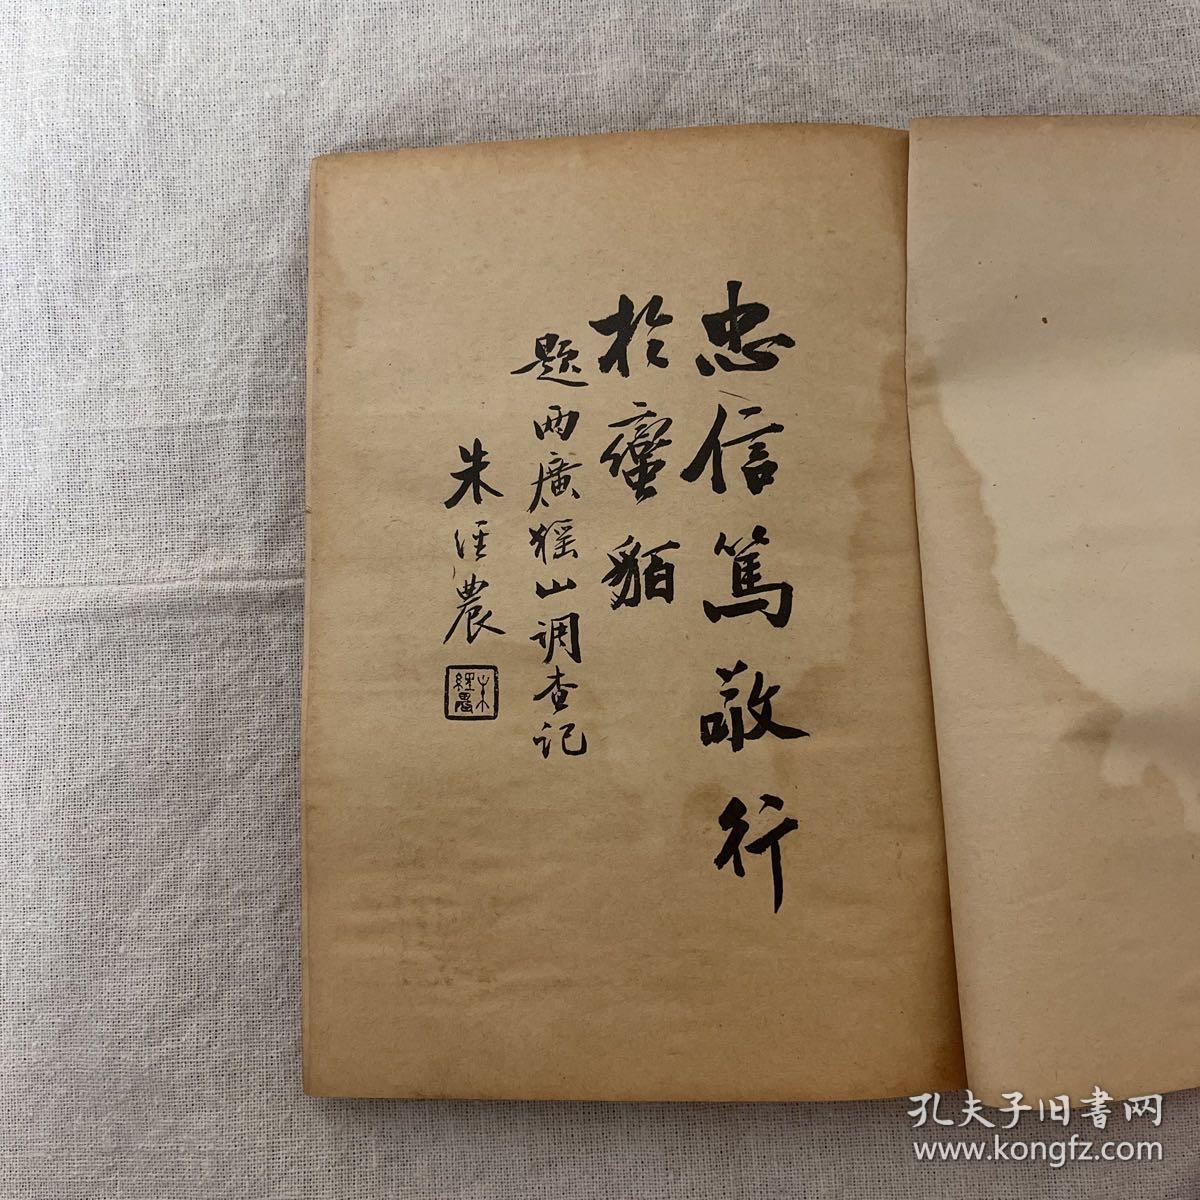 忠信篤敬行
於蠻貊
題兩廣猺山調查記
朱經農
朱經農
孔夫子旧書网
www.kongfz.com